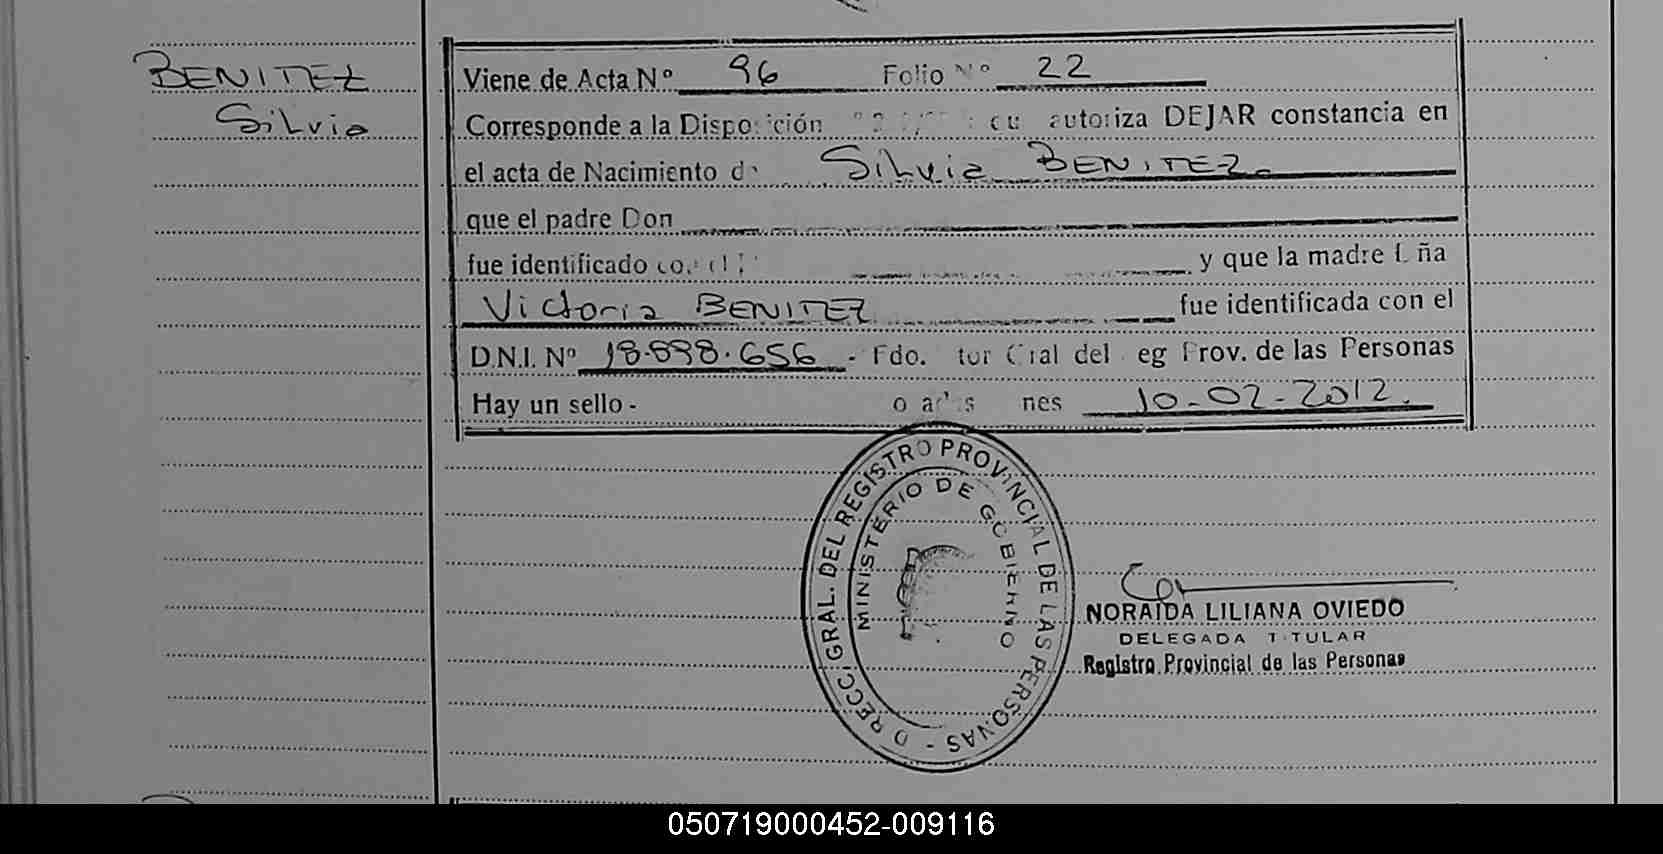 BENITEZ
Silvia
Viene de Acta Nº 96 Folio Nº 22
Corresponde a la Disposición autoriza DEJAR constancia en
el acta de Nacimiento de Silvia BENITEZ.
que el padre Don
fue identificado y que la madre
Victoria BENITEZ fue identificada con el
D.N.I. Nº 18.898.656 - Fdo. Gral del Prov. de las Personas
Hay un sello - 10-02-2012.
DIRECC. GRAL. DEL REGISTRO PROVINCIAL DE LAS PERSONAS -
MINISTERIO DE GOBIERNO
NORAIDA LILIANA OVIEDO
DELEGADA TITULAR
Registro Provincial de las Personas
050719000452-009116